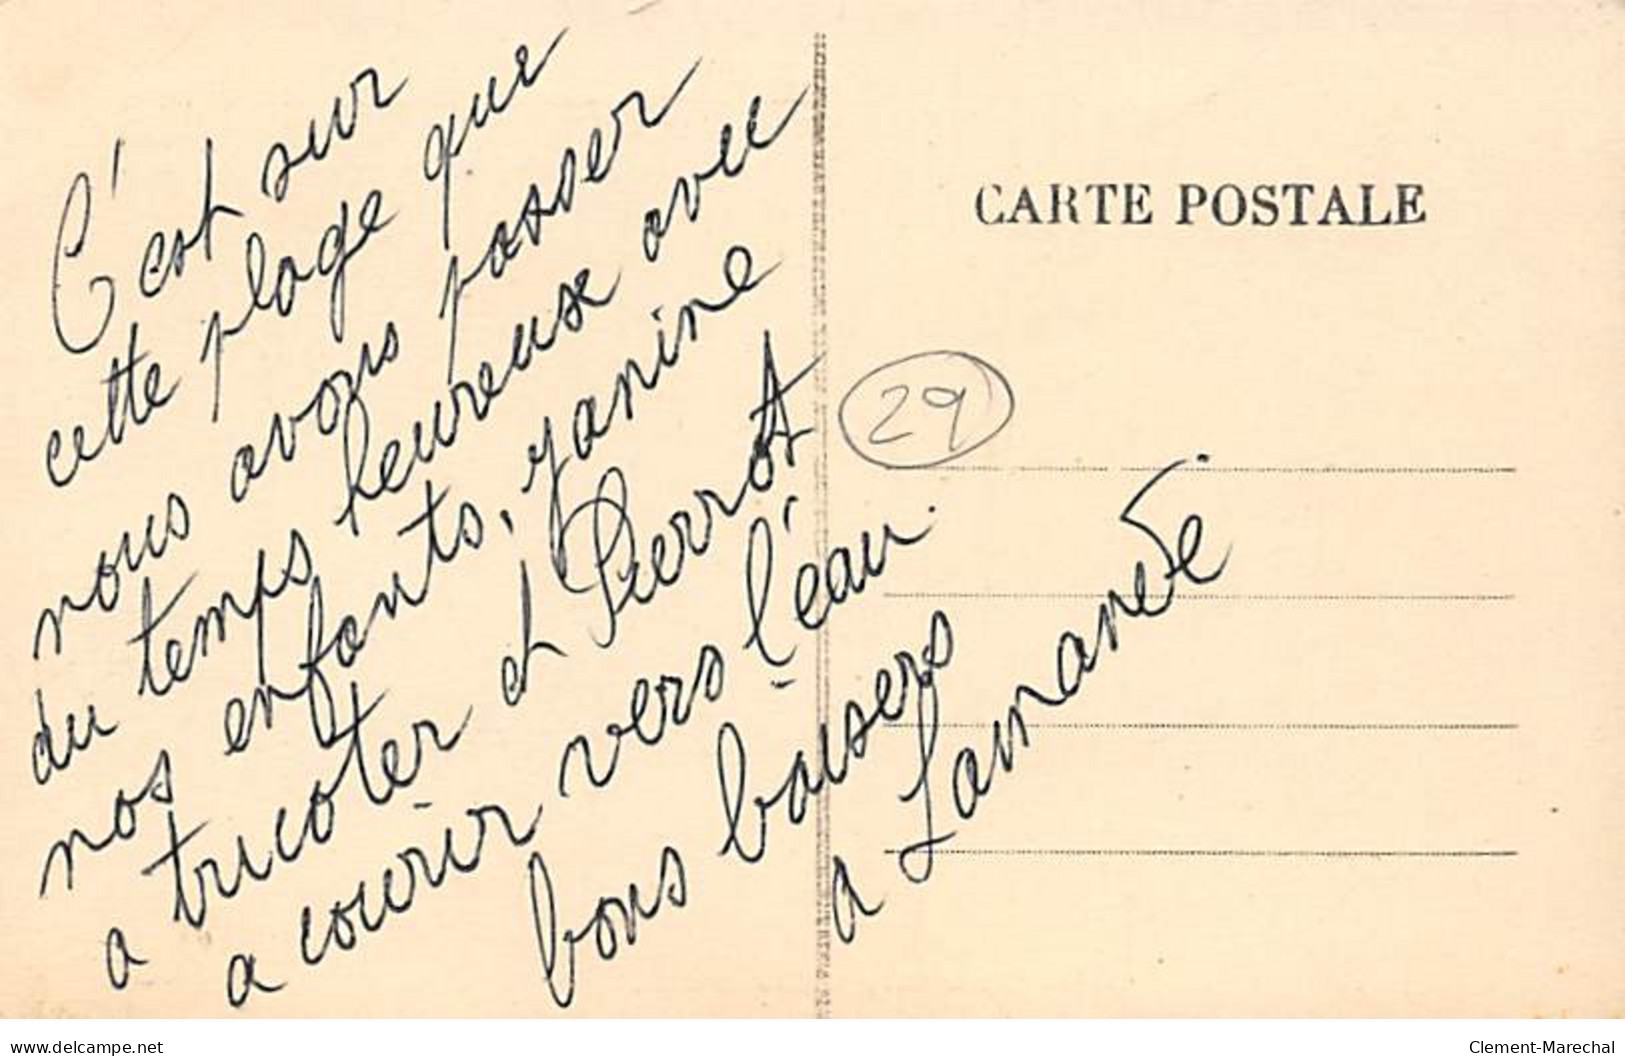 C'est sur
cette plage que
nous avons passer
du temps heureux avec
nos enfants, yanine
a tricoter et Pierrot
a courir vers l'eau.
bons baisers
a
CARTE POSTALE
29
delcampe.net
Clement-Marechal